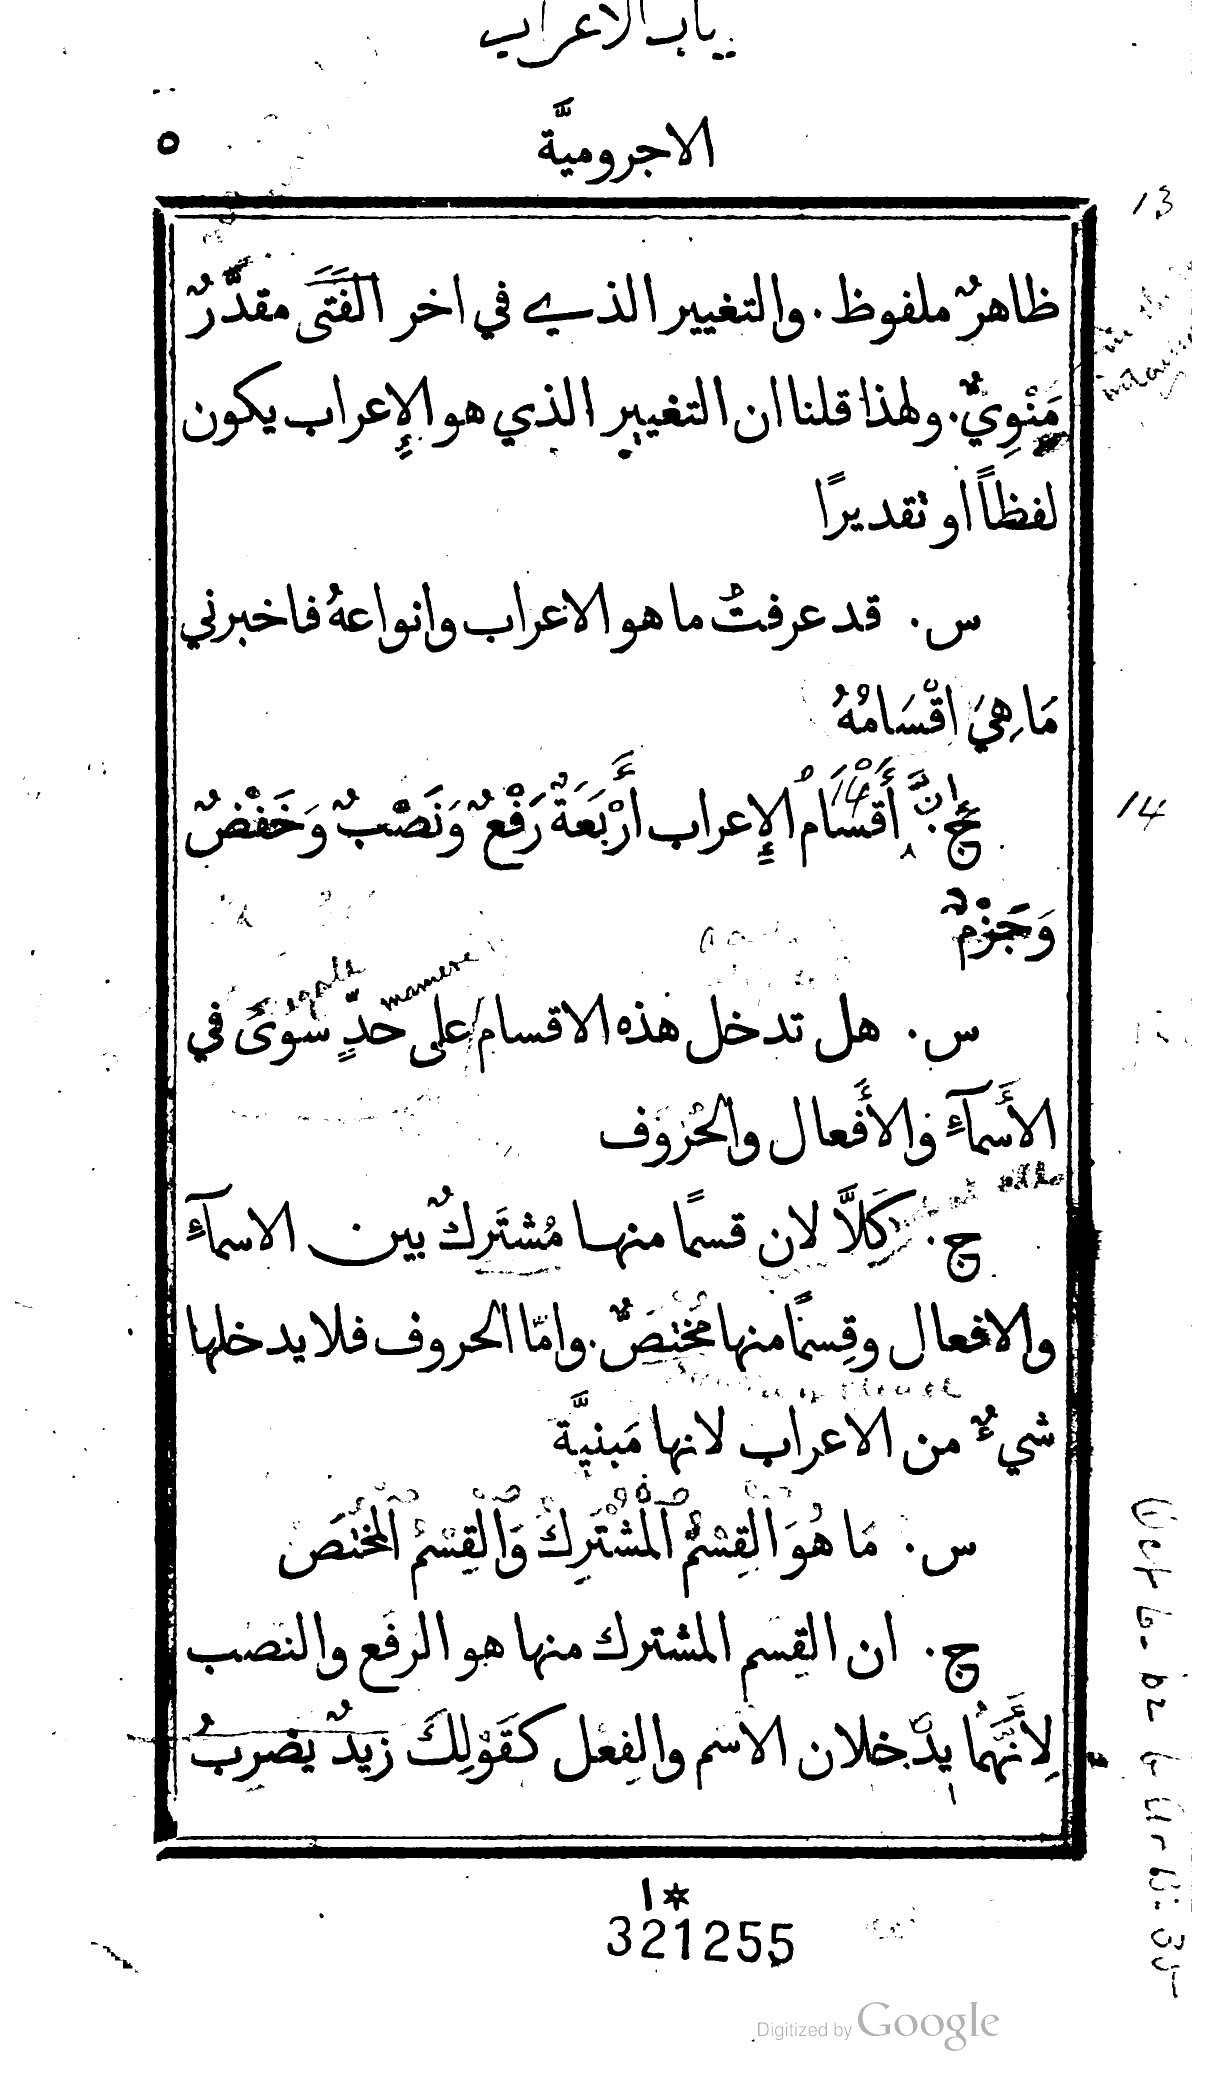 باب الاعراب
الاجروميَّة
٥
13
ظاهرٌ ملفوظ. والتغيير الذي في اخر الفَتَى مقدَّرٌ
مَنْوِيٌّ. ولهذا قلنا ان التغيير الذي هو الإعراب يكون
لفظاً او تقديرًا
س. قد عرفتُ ما هو الاعراب وانواعهُ فاخبرني
مَا هِيَ اقْسَامُهُ
ج. إنَّ أَقْسَامُ الإعراب أَرْبَعَةٌ رَفْعٌ وَنَصْبٌ وَخَفْضٌ
14
14
وَجَزْمٌ
egale
maniere
س. هل تدخل هذه الاقسام على حدٍّ سُوىً في
الأَسمآءِ والأَفعال والحُرُوف
ج. كَلَّا لان قسمًا منها مُشتَرِكٌ بين الاسمآءِ
والافعال وقِسمًا منها مُختَصٌّ. وامّا الحروف فلا يدخلها
شيءٌ من الاعراب لانها مَبنيَّة
س. مَا هُوَ القِسْمُ المُشْتَرِكُ وَالقِسْمُ المُختَصّ
ج. ان القِسم المشترك منها هو الرفع والنصب
لِأَنَّهُمَا يدْخلان الاسم والفِعْل كَقَوْلِكَ زيدٌ يضرِبُ
١*
321255
Digitized by Google